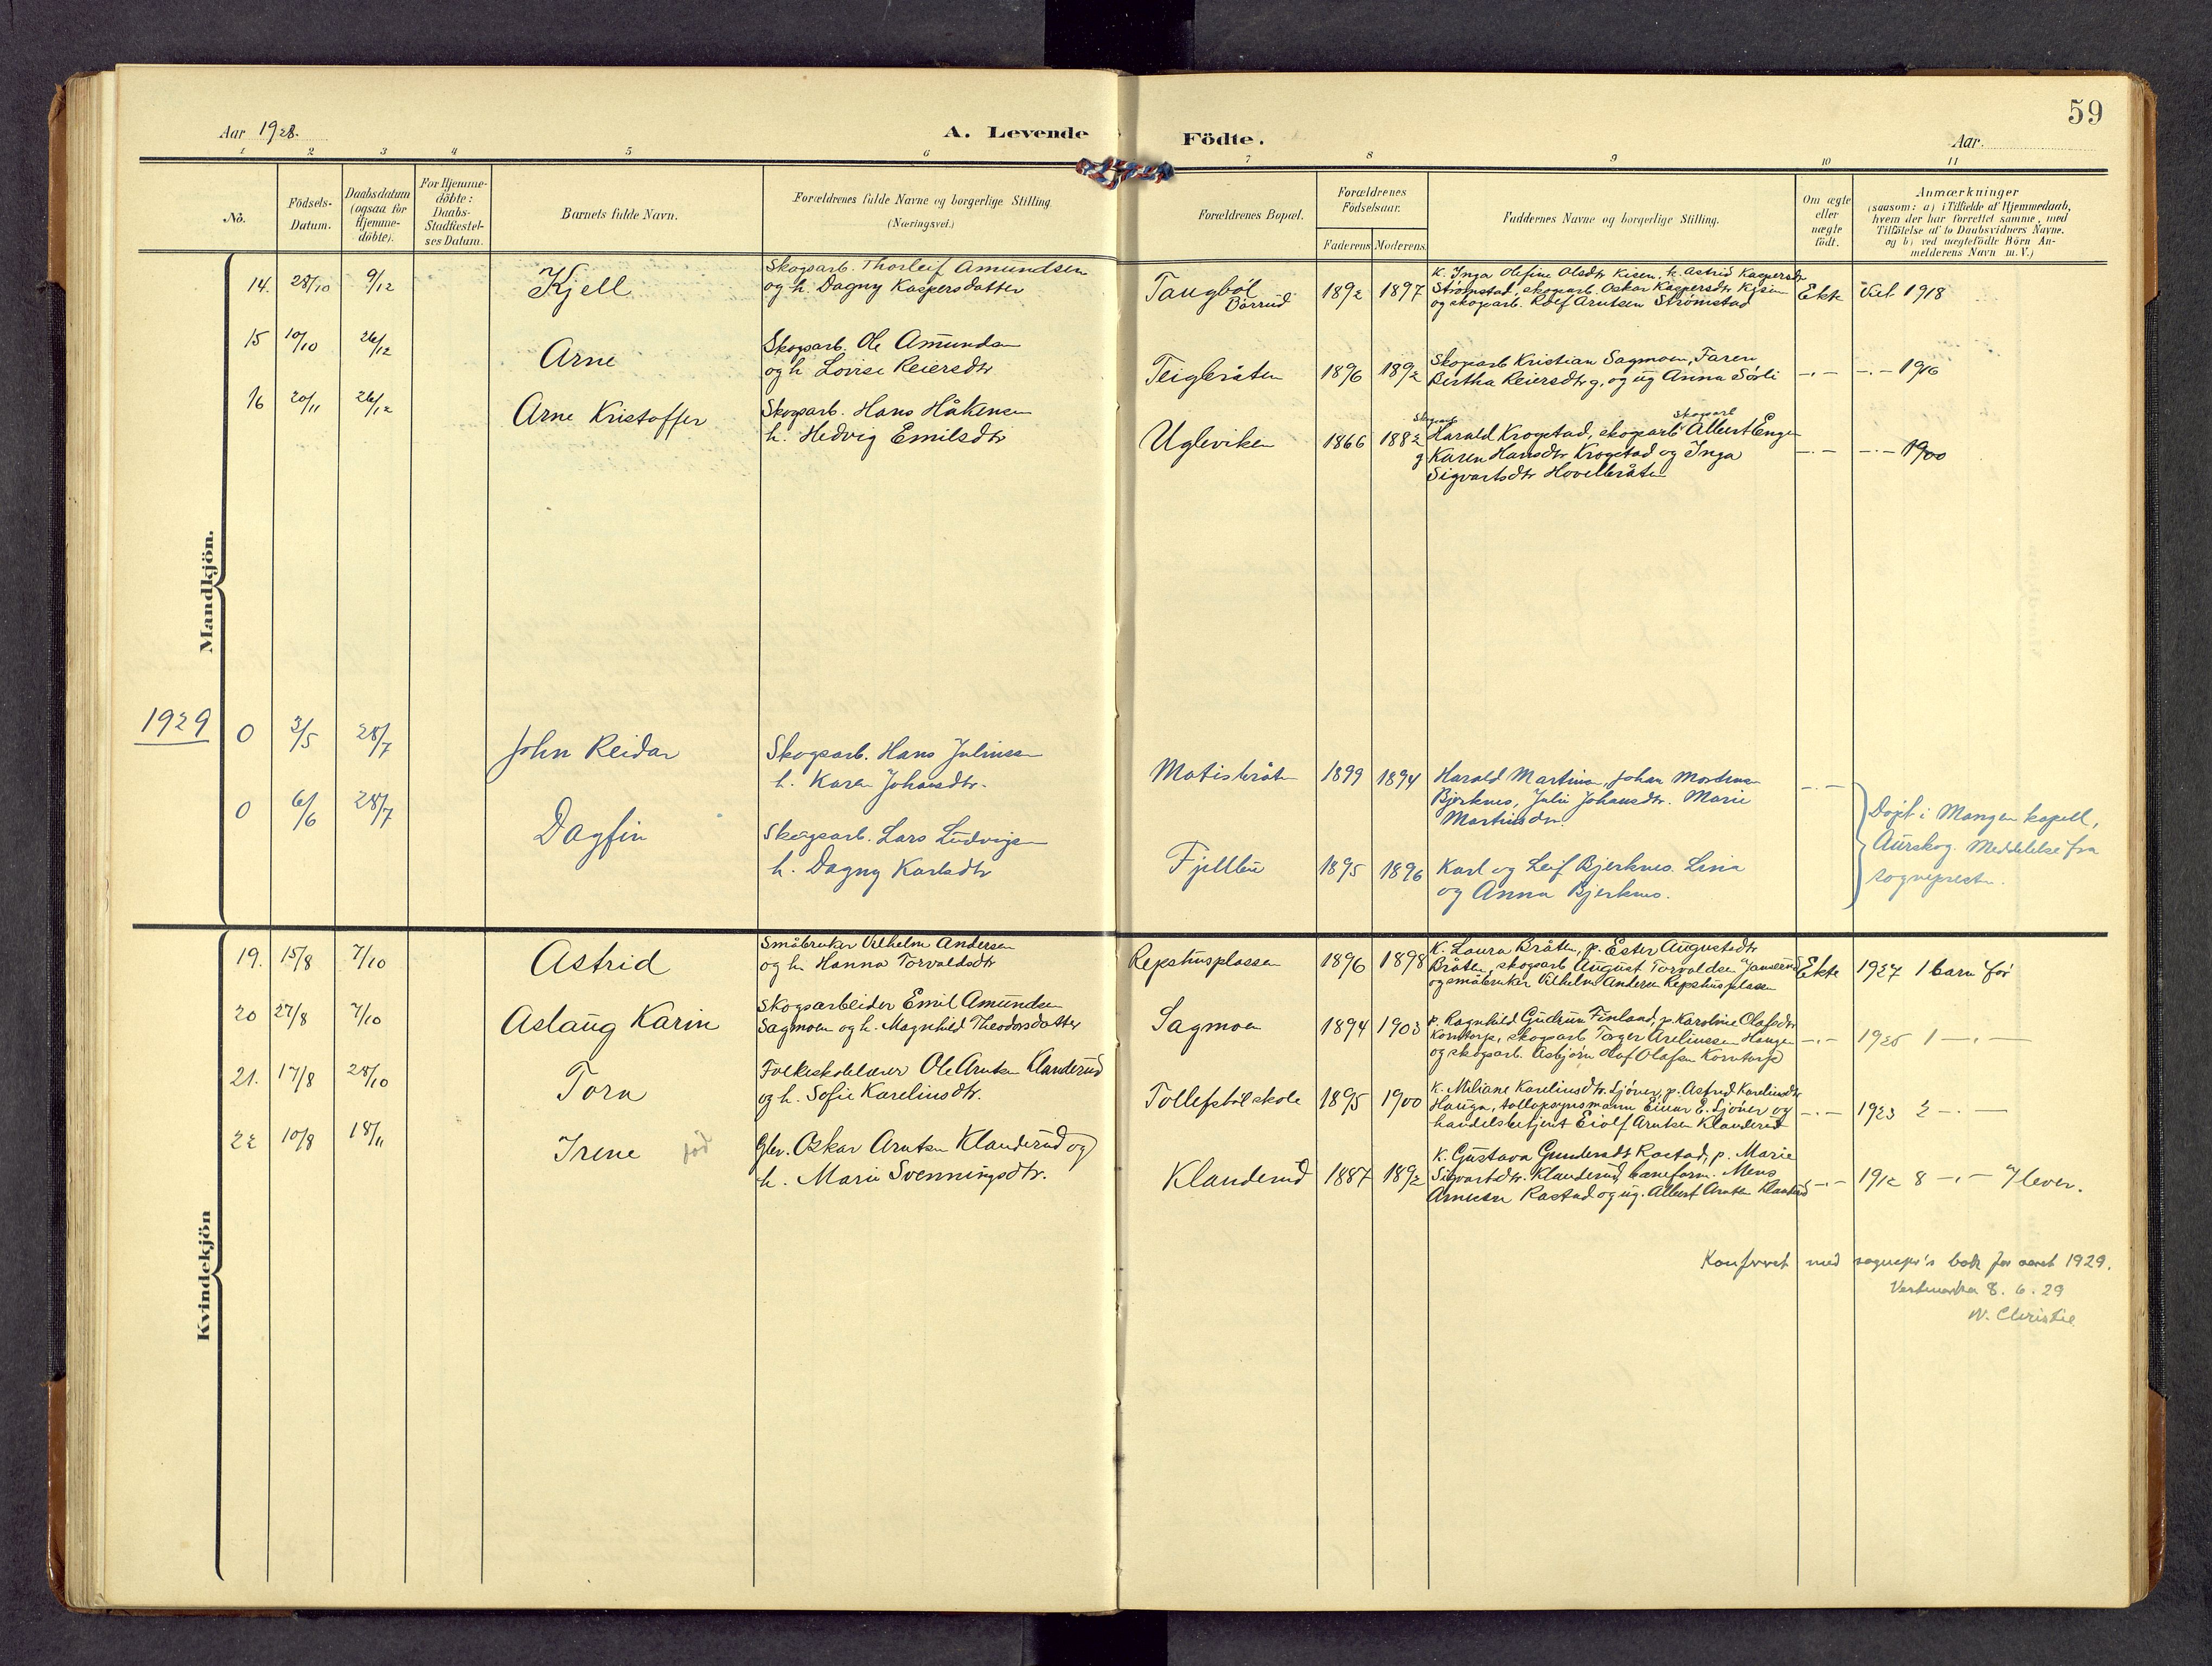 59
Aar 1928.
A. Levende Födte.
Aar
1 2 3 4 5 6 7 8 9 10 11
No.
Födsels-
Datum.
Daabsdatum
(ogsaa for
Hjemme-
döbte).
For Hjemme-
döbte:
Daabs-
Stadfæstel-
ses Datum.
Barnets fulde Navn.
Forældrenes fulde Navne og borgerlige Stilling.
(Næringsvei.)
Forældrenes Bopæl.
Forældrenes
Födselsaar.
Faderens Moderens
Faddernes Navne og borgerlige Stilling.
Om ægte
eller
uægte
födt.
Anmærkninger
(saasom: a) i Tilfælde af Hjemmedaab,
hvem der har forrettet samme, med
Tilföielse af to Daabsvidners Navne.
og b) ved uægtefödte Börn An-
melderens Navn m.V.)
Mandkjön.
14. 28/10 9/12
Kjell
Skogsarb. Thorleif Amundsen
og h. Dagny Kaspersdatter
Taugböl
Börrud
1892 1897
K. Inga Olefine Olsdtr Kisen, k. Astrid Kaspersdtr
Strömstad, skogsarb. Oskar Kaspersdtr Kisen
og skogsarb. Rolf Arntsen Strömstad
Ekte
Viet 1918
15 10/10 26/12
Arne
Skogsarb. Ole Amundsen
og h. Lovise Reiersdtr
Teigbråten
1896 1892
Skogsarb Kristian Sagmoen, Faren
Bertha Reiersdtr g. og ug Anna Sörli
—.— —.— 1916
16 20/11 26/12
Arne Kristoffer
Skogsarb. Hans Håkensen
h. Hedvig Emilsdtr
Ugleviken
1866 1882
Skogsarb Harald Krogstad, skogsarb Albert Engen
g Karen Hansdtr Krogstad og Inga
Sigvartsdtr Hovelbråten
—.— —.— 1900
1929
0 3/5 28/7
John Reidar
Skogsarb. Hans Juliussen
h. Karen Johansdtr.
Matisbråt
1899 1894
Harald Martinsen, Johan Mortensen
Bjerknes, Julie Johansdtr. Marie
Martinsdtr.
—.—
0 6/6 28/7
Dagfin
Skogsarb. Lars Ludvigsen
h. Dagny Karlsdtr
Fjellbu
1895 1896
Karl og Leif Bjerknes. Lina
og Anna Bjerknes.
Döpt i Mangen kapell,
Aurskog. Meddelelse fra
sogneprest.
Kvindekjön
19. 15/8 7/10
Astrid
Småbruker Vilhelm Andersen
og h. Hanna Torvaldsdtr
Repshusplassen
1896 1898
K. Laura Bråten, p. Ester Augustsdtr
Bråten, skogsarb August Torvaldsen
og småbruker Vilhelm Andersen Repshusplassen
Ekte
1927 1 barn för
20 27/8 7/10
Aslaug Karin
Skogsarbeider Emil Amundsen
Sagmoen og h. Magnhild Theodorsdatter
Sagmoen
1894 1903
p. Ragnhild Gudrun Finland, p. Karoline Olafsdtr
Korntorp, skogsarb Torger Areliussen Haugen
og skogsarb. Asbjörn Olaf Olafsen Korntorp
—.—
1926 1 —.—
21. 17/8 28/10
Tora
Folkeskolelærer Ole Arntsen Klanderud
og h. Sofie Kareliusdtr.
Tollefsböl skole
1895 1900
K. Miliane Kareliusdtr. Sjöner, p. Astrid Kareliusdtr
Hauga, tollopsynsmann Einar E. Sjöner og
handelsbetjent Eiolf Arntsen Klanderud
—.—
1923 2 —.—
22 10/8 18/11
Irene
Gbr. Oskar Arntsen Klanderud og
h. Marie Svenningsdtr.
Klanderud
1887 1892
K. Gustava Gundersdtr Rastad, p. Marie
Sigvartsdtr. Klanderud, baneform. Mens
Arnesen Rastad og ug. Albert Arntsen Klanderud
—.—
1912 8 —.— 7 lever.
Konferert med sognepr's bok for aaret 1929.
Vestmarka 8. 6. 29
W. Christie